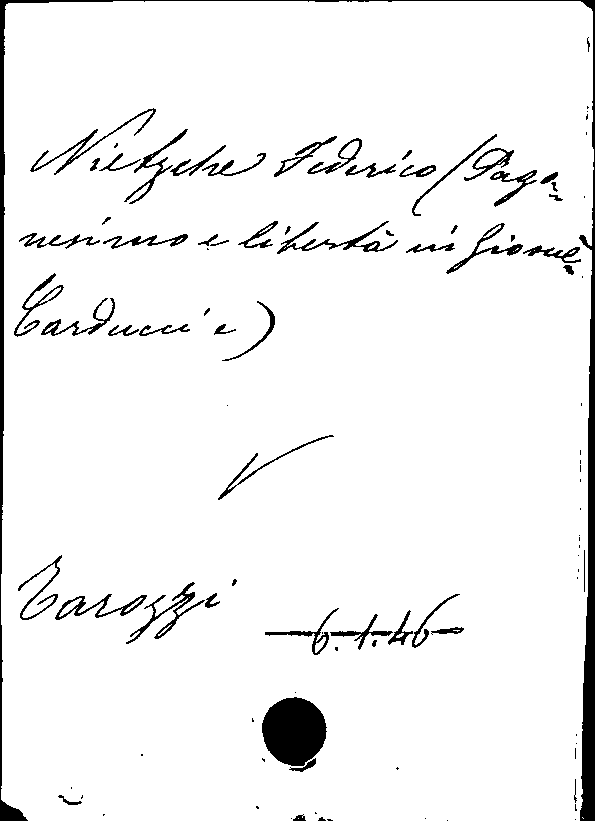 Nietzche Federico (Paga-
nesimo e libertà in Giosuè
Carducci e)
V
Tarozzi
6.1.46